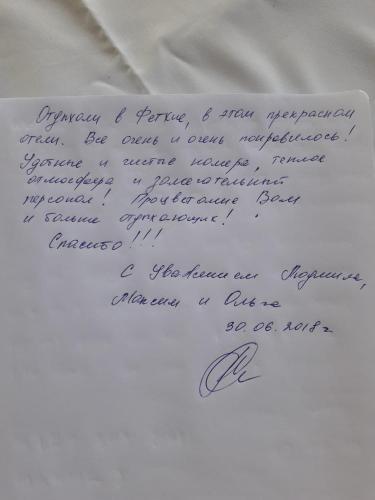 Отдыхали в Фетхие, в этом прекрасном
отели. Все очень и очень понравилось!
Удотные и чистые номера, теплое
атмосфера и замегательный
персонал! Процветание Вам
и больше отдыхающих!
Спасибо!!!
С Уважением Людмила,
Максим и Ольга
30.06.2018г